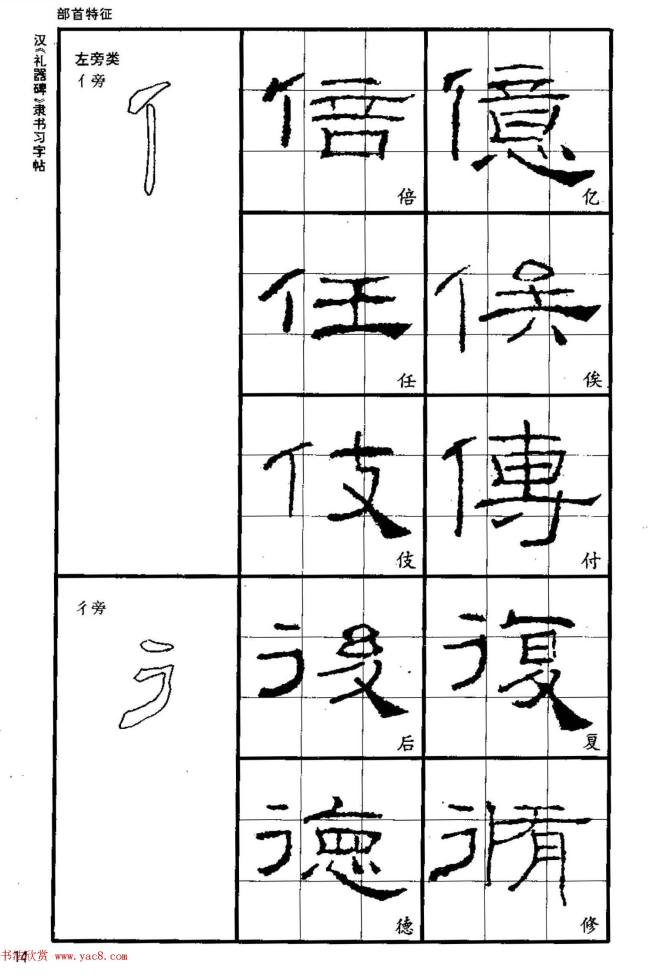 部首特征
汉《礼器碑》隶书习字帖
左旁类
亻旁
倍 億
倍 亿
任 俟
任 俟
伎 傳
伎 付
彳旁
後 復
后 复
德 脩
德 修
14
书法欣赏 www.yac8.com